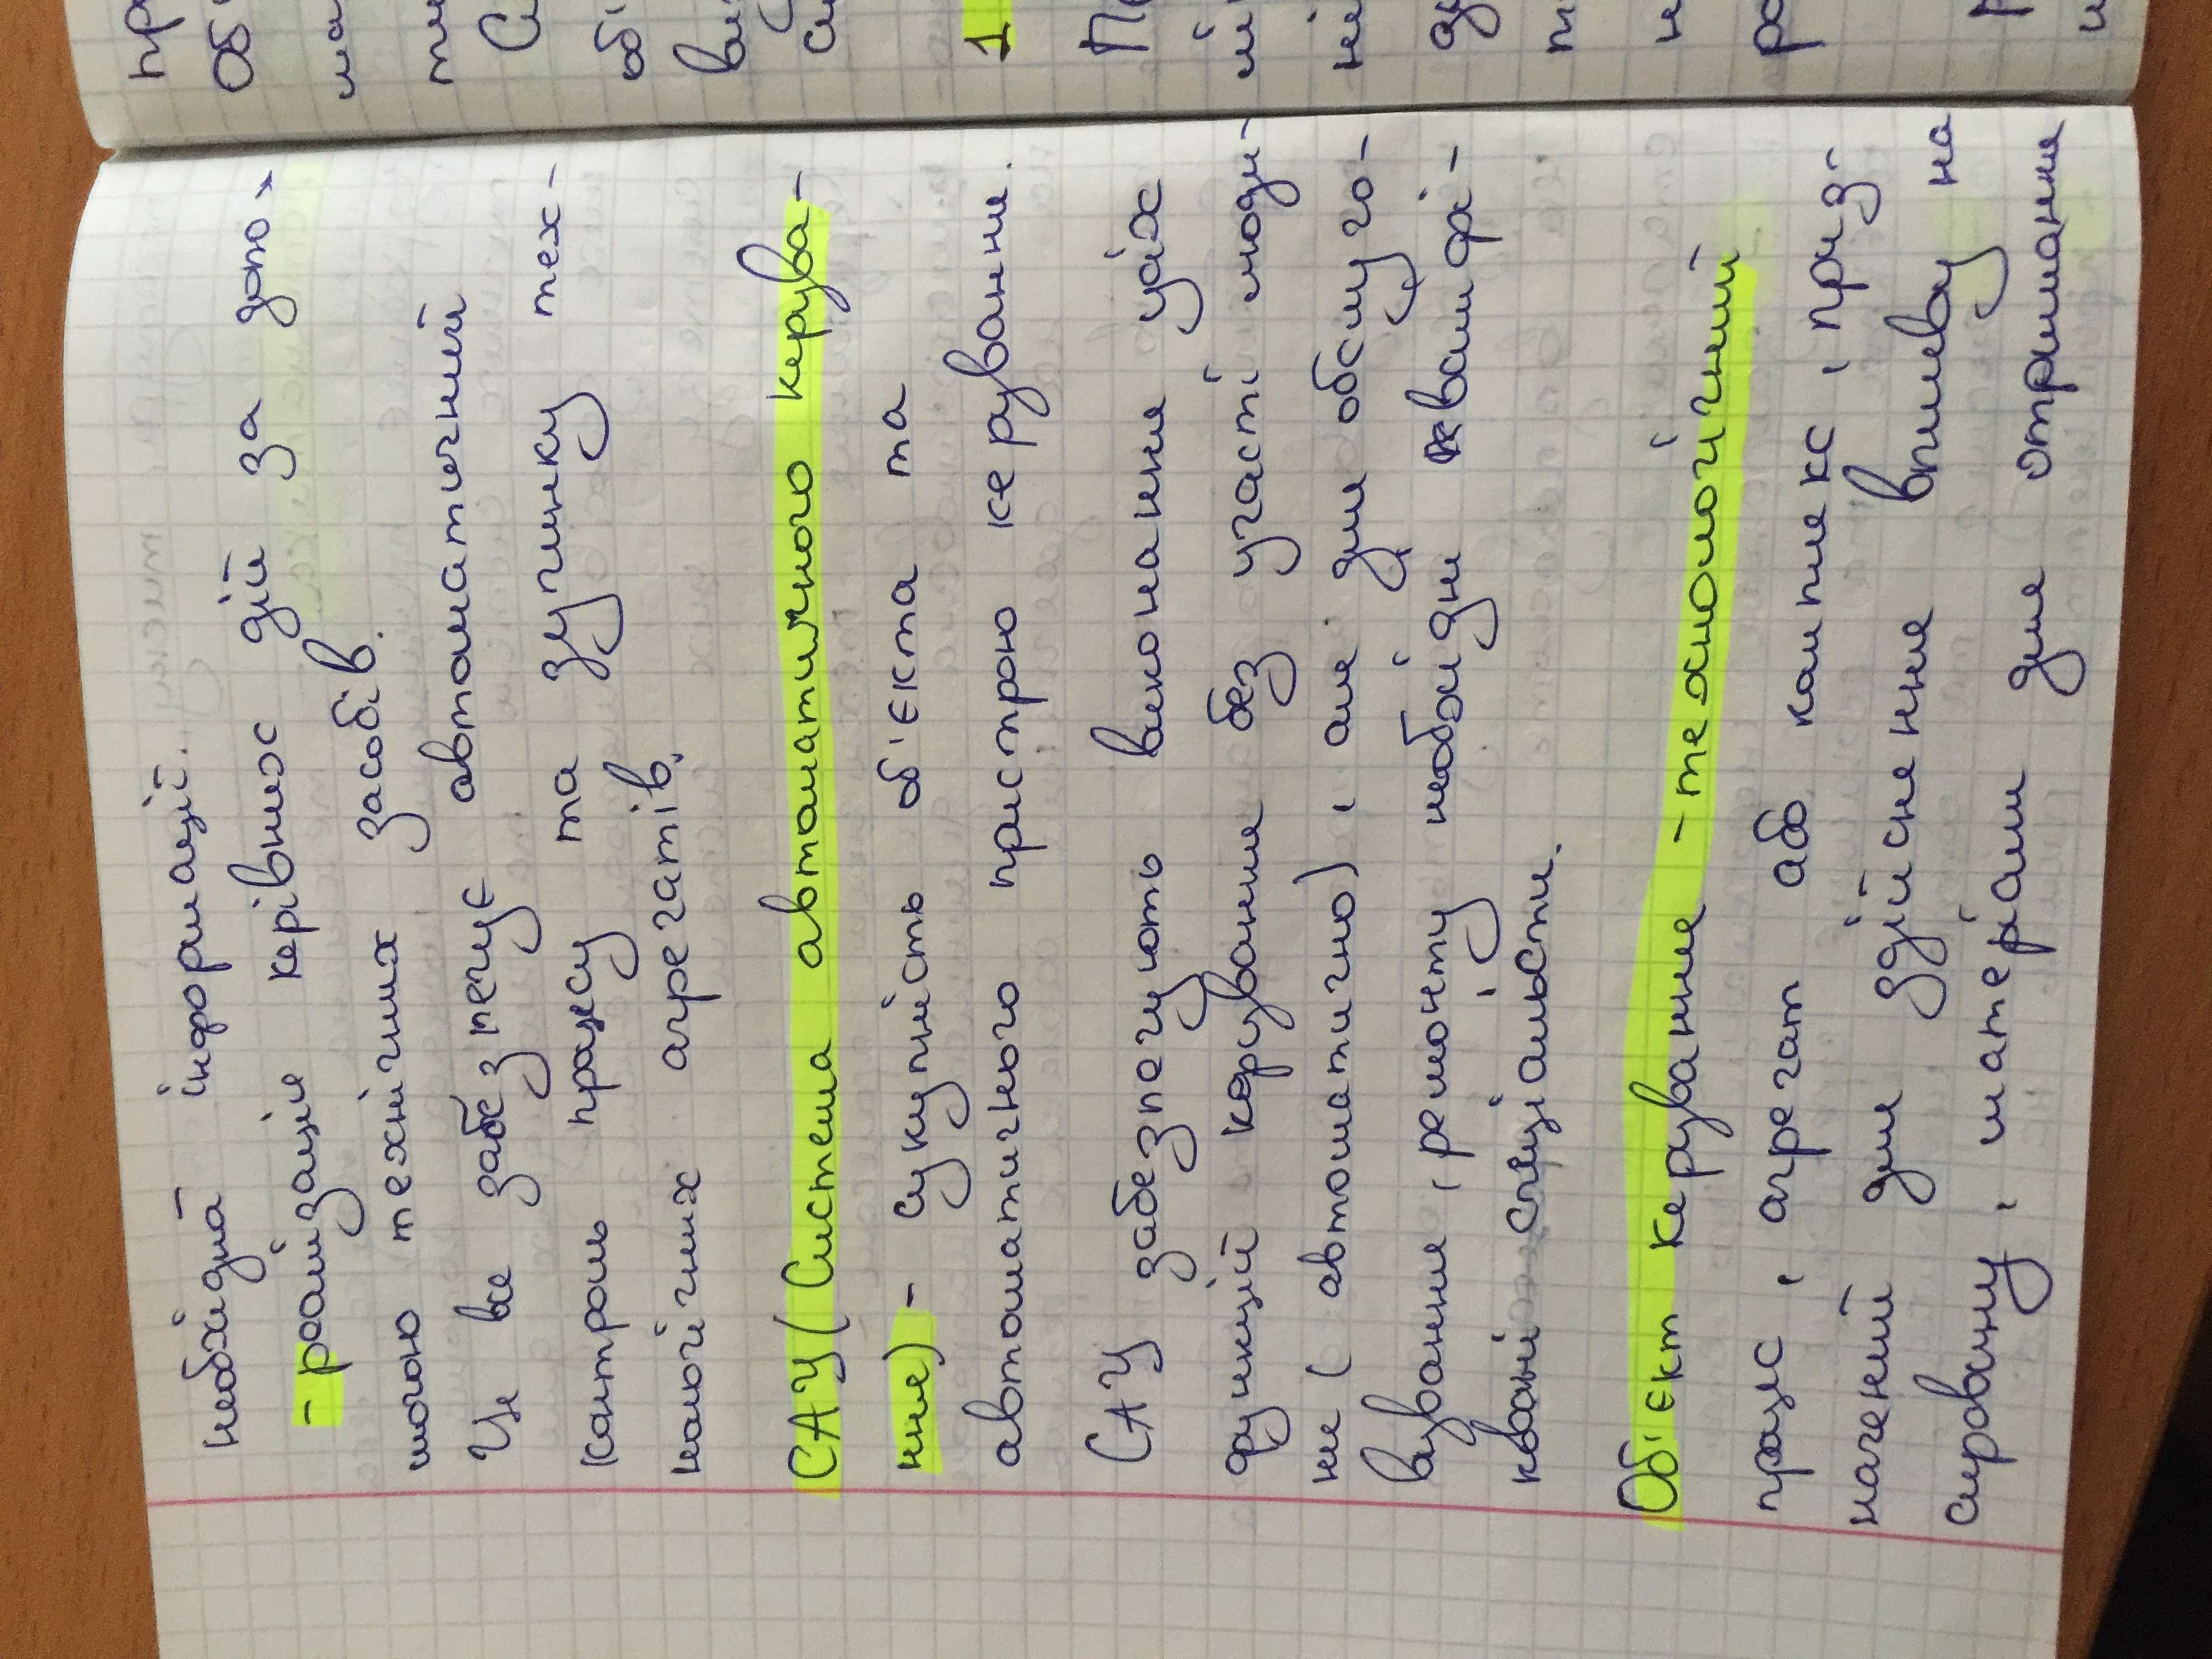 необхідна інформації.
- реалізація керівних дій за допо-
могою технічних засобів.
Це все забезпечує автоматичний
контроль процесу та зупинку тех-
нологічних агрегатів.
САУ (Система автоматичного керува-
ння) - сукупність об'єкта та
автоматичного пристрою керування.
САУ забезпечують виконання усіх
функцій керування без участі люди-
ни (автоматично), але для обслуго-
вування, ремонту необхідні кваліфі-
ковані спеціалісти.
Об'єкт керування - технологічний
процес, агрегат або комплекс, приз-
начений для здійснення впливу на
сировину, матеріали для отримання
1